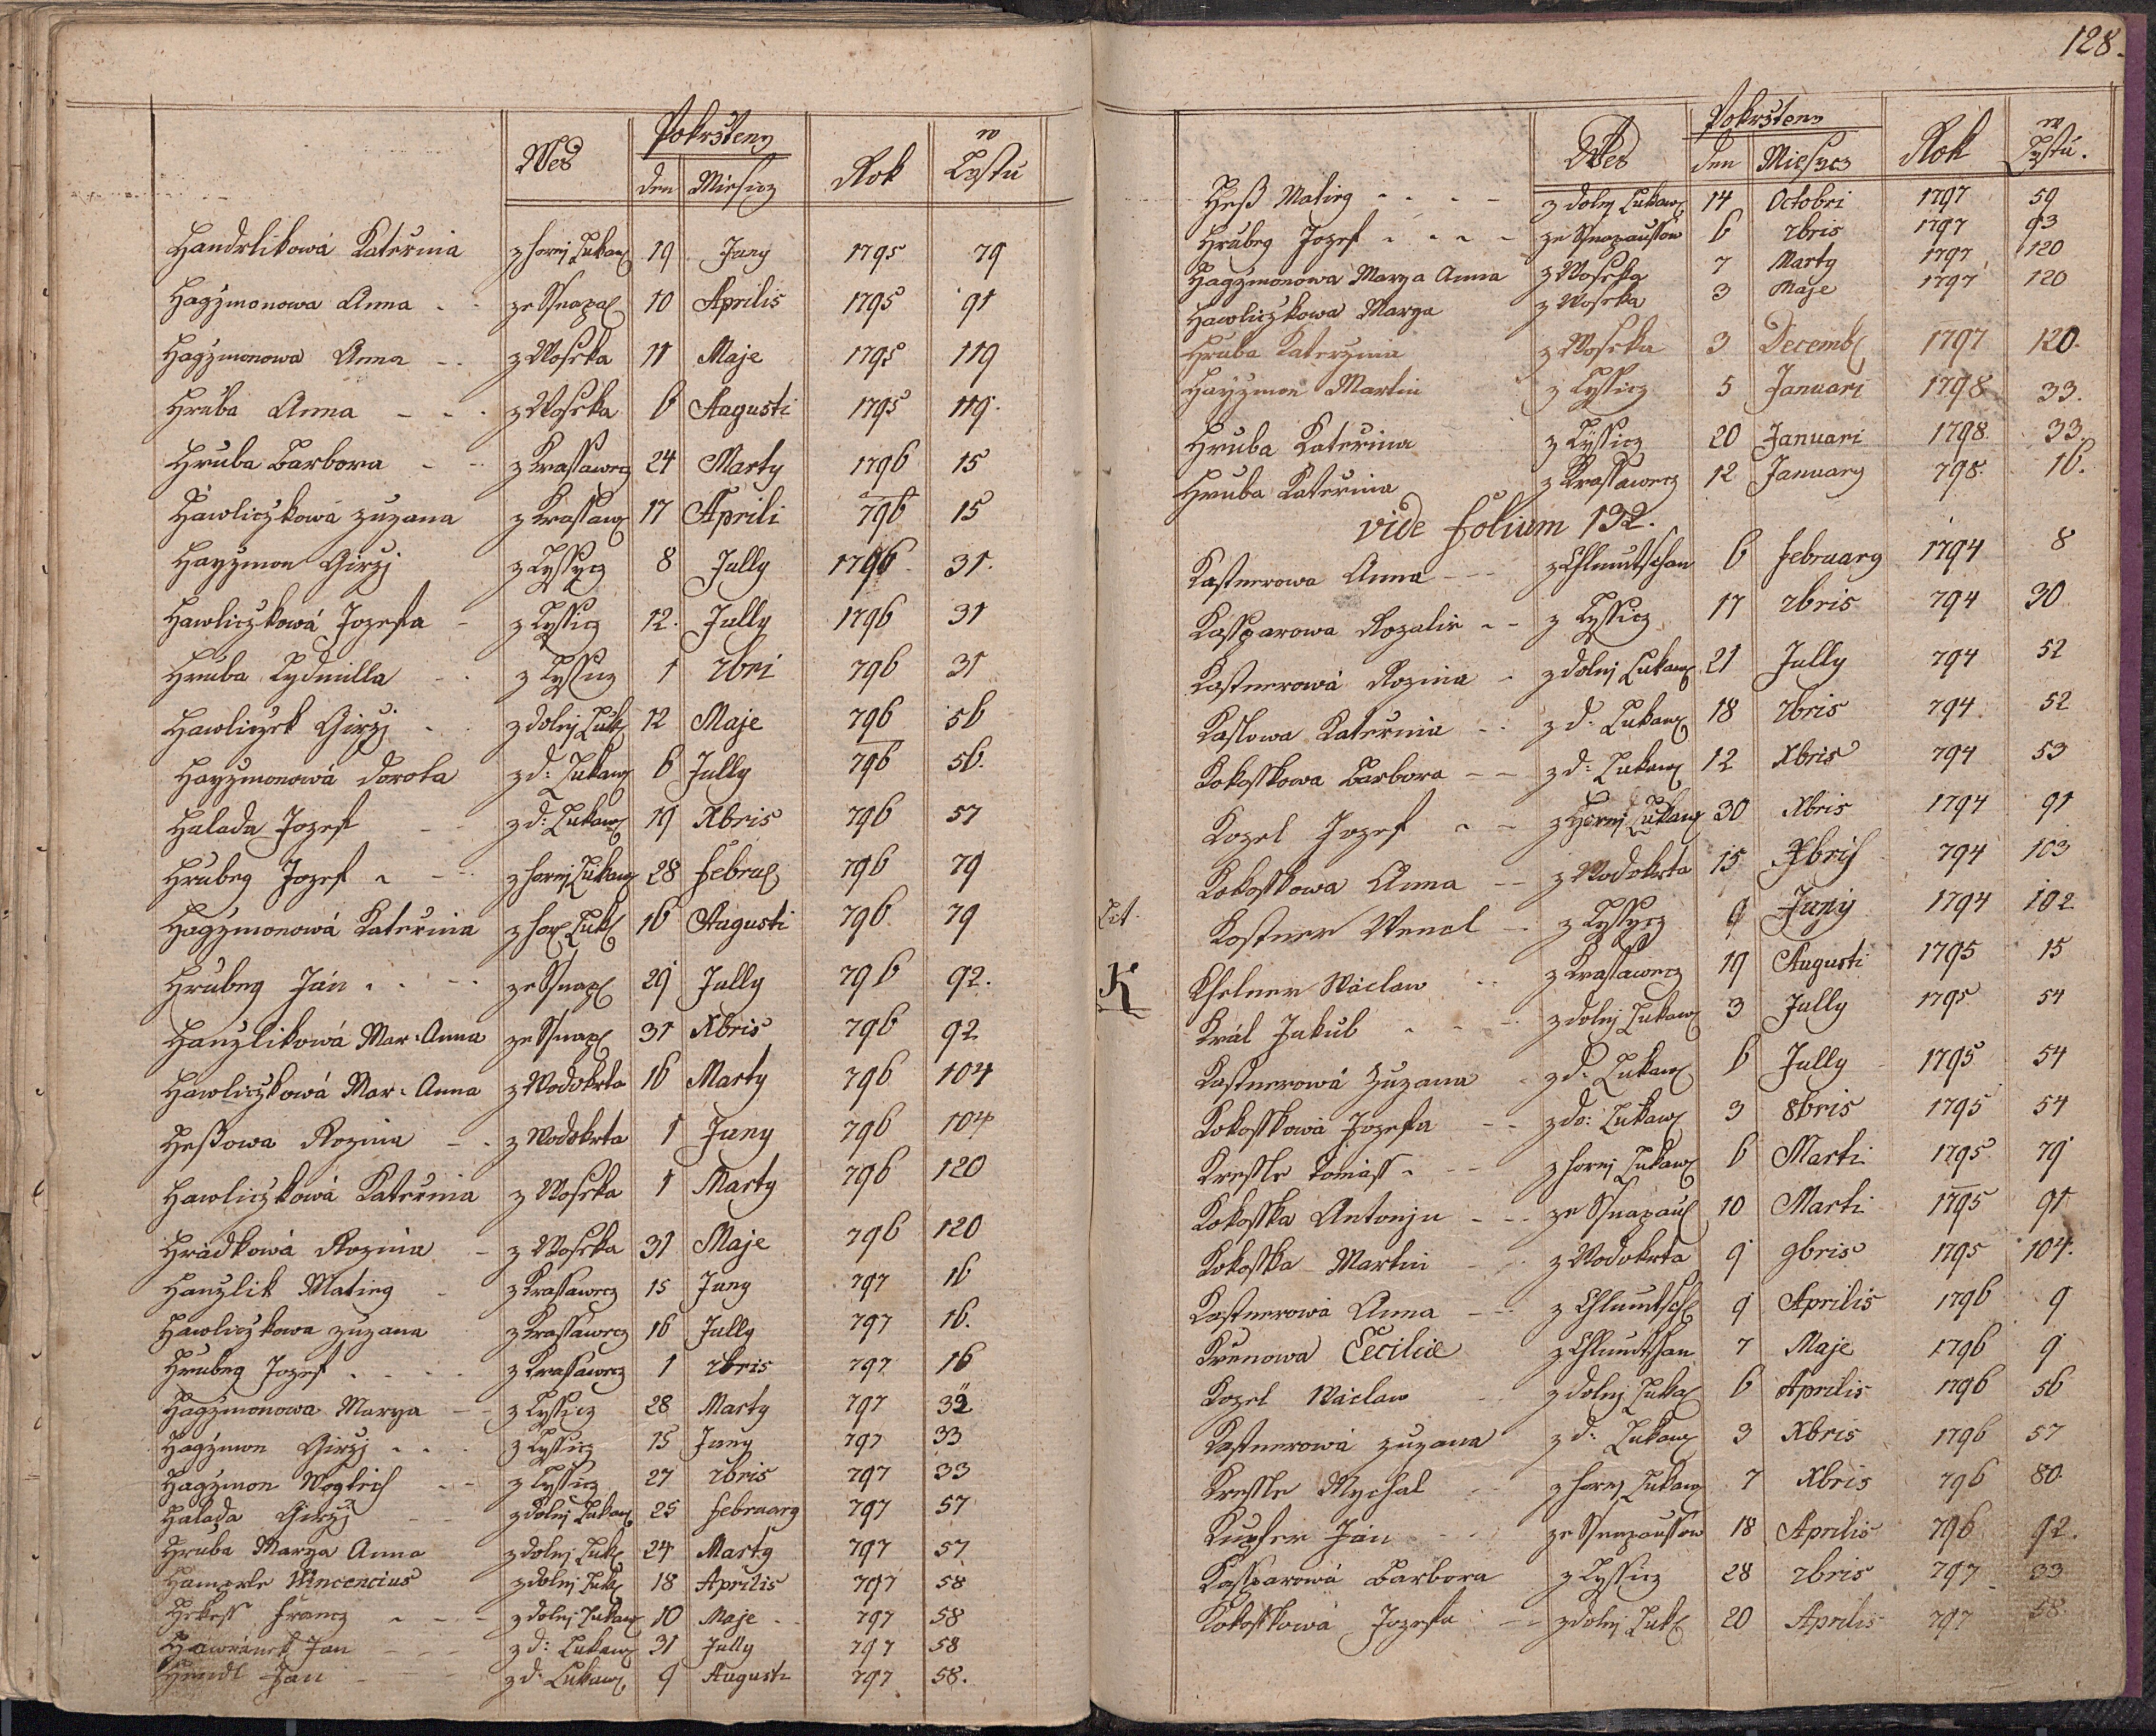 128.
Wes Pokrsteny Rok w Lystu
den Miesicz
Handrlikowá Katerina z horej Lukaw 19 Juny 1795 79
Hagzmonowa Anna ze Snopa 10 Aprilis 1795 91
Hagzmonowa Anna z Woseka 11 Maje 1795 119
Hruba Anna z Woseka 6 Augusti 1795 119.
Hruba Barbora z Krassawecz 24 Marty 1796 15
Háwliczkowa Zuzana z Krassaw 17 Aprili 796 15
Hayzmon Girzj z Lyssycz 8 Jully 1796 31.
Hawliczkowá Jozefa z Lyssicz 12. Jully 1796 31
Hruba Lydmilla z Lyssicz 1 7bri 796 31
Hawliczek Girzj z dolej Luk 12 Maje 796 56
Hayzmonowá Dorota z d: Lukaw 6 Jully 796 56.
Halada Jozef z d: Lukaw 19 Xbris 796 57
Hrubeg Jozef z horej Lukaw 28 Febru 796 79
Hagzmonowá Katerina z hor Luk 16 Augusti 796 79
Hrubeg Ján ze Snop 29 Jully 796 92.
Hanzlikowá Mar: Anna ze Snop 31 Xbris 796 92
Hawliczkowá Mar: Anna z Wodokrta 16 Marty 796 104
Heßowa Rozina z Wodokrta 1 Juny 796 104
Hawliczkowá Katerina z Woseka 1 Marty 796 120
Hrádkowá Rozina z Woseka 31 Maje 796 120
Hanzlik Mateg z Krassawecz 15 Juny 797 16
Hawliczkowa Zuzana z Krassawecz 16 Jully 797 16.
Hrubeg Jozef z Krassawecz 1 7bris 797 16
Hagzmonowa Marya z Lyssicz 28 Marty 797 32
Hagzmon Girzj z Lyssicz 15 Juny 797 33
Hagzmon Wogtech z Lyssicz 27 7bris 797 33
Halada Girzj z dolej Lukaw 25 Februarg 797 57
Hruba Marya Anna z dolej Luk 24 Marty 797 57
Hamerle Wincencius z dolej Luk 18 Aprilis 797 58
Francz z dolej Lukaw 10 Maje 797 58
Hawránek Jan z d: Lukaw 31 Jully 797 58
Heindl Jan z d: Lukaw 9 Augusti 797 58.
Wes Pokrsteny Rok w Lystu.
den Miesycz
Heß Mateg z dolej Lukaw 14 Octobri 1797 59
Hrubeg Jozef ze Snopaussow 6 7bris 1797 93
Hagzmonowa Marya Anna z Woseka 7 Marty 1797 120
Hawliczkowa Marya z Woseka 3 Maje 1797 120
Hruba Katerzina z Woseka 3 Decemb 1797 120.
Hayzmon Martin z Lyssicz 5 Januari 1798 33.
Hruba Katerina z Lyssicz 20 Januari 1798 33.
Hruba Katerina z Krassawecz 12 Januarg 798 16.
vide Folium 132.
Kastnerowa Anna z Chlumtschan 6 Februarg 1794 8
Kassparowa Rozalie z Lyssicz 17 7bris 794 30
Kastnerowá Rozina z dolej Lukaw 21 Jully 794 52
Kaslowa Katerina z d. Lukaw 18 7bris 794 52
Kokosskowa Barbora z d: Lukaw 12 Xbris 794 53
Kozel Jozef z Horej Lukaw 30 Xbris 1794 91
Kokosskowa Anna z Wodokrta 15 Xbris 794 103
Lit. Kostner Wencl z Lyssycz 9 Juny 1794 102
K Kselner Wáclaw z Krassawecz 19 Augusti 1795 15
Král Jakub z dolej Lukaw 3 Jully 1795 54
Kastnerowá Zuzana z d. Lukaw 6 Jully 1795 54
Kokosskowá Jozefa z do: Lukaw 3 8bris 1795 54
Kressle Tomass z horej Lukaw 6 Marti 1795 79
Kokosska Antonjn ze Snopau 10 Marti 1795 91
Kokosska Martin z Wodokrta 9 9bris 1795 104.
Kastnerowá Anna z Chlumtsch 9 Aprilis 1796 9
Krunowa Cecilie z Chlumtschan 7 Maje 1796 9
Kozel Wáclaw z dolej Luka 6 Aprilis 1796 56
Kastnerowá Zuzana z d. Lukaw 3 Xbris 1796 57
Kressle Mychal z horej Lukaw 7 Xbris 796 80.
Kupfer Ján ze Snopaussow 18 Aprilis 796 92.
Kassparowá Barbora z Lyssicz 28 7bris 797 33
Kokosskowá Jozefa z dolej Luk 20 Aprilis 797 58.